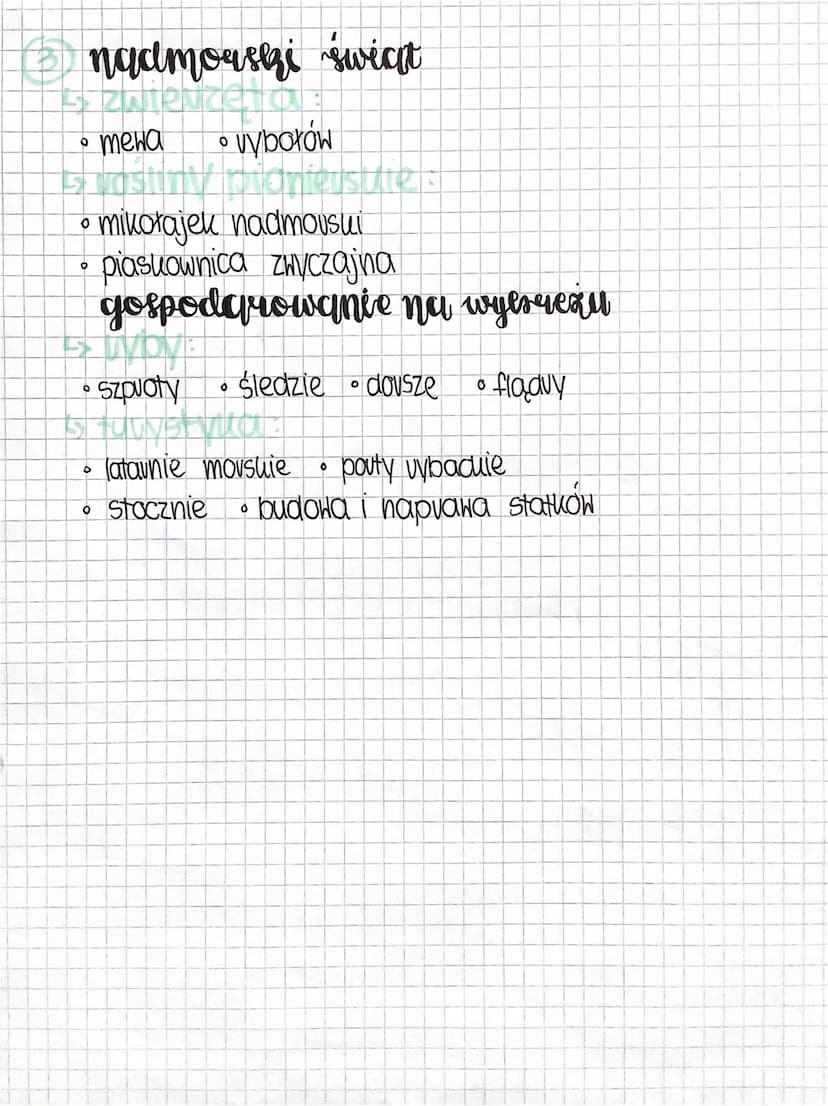 3 nadmorski świat
↳ zwierzęta:
• mewa • rybołów
↳ rośliny pionierskie:
• mikołajek nadmorski
• piaskownica zwyczajna
gospodarowanie na wybrzeżu
↳ ryby:
• szproty • śledzie • dorsze • flądry
↳ turystyka:
• latarnie morskie • porty rybackie
• stocznie • budowa i naprawa statków